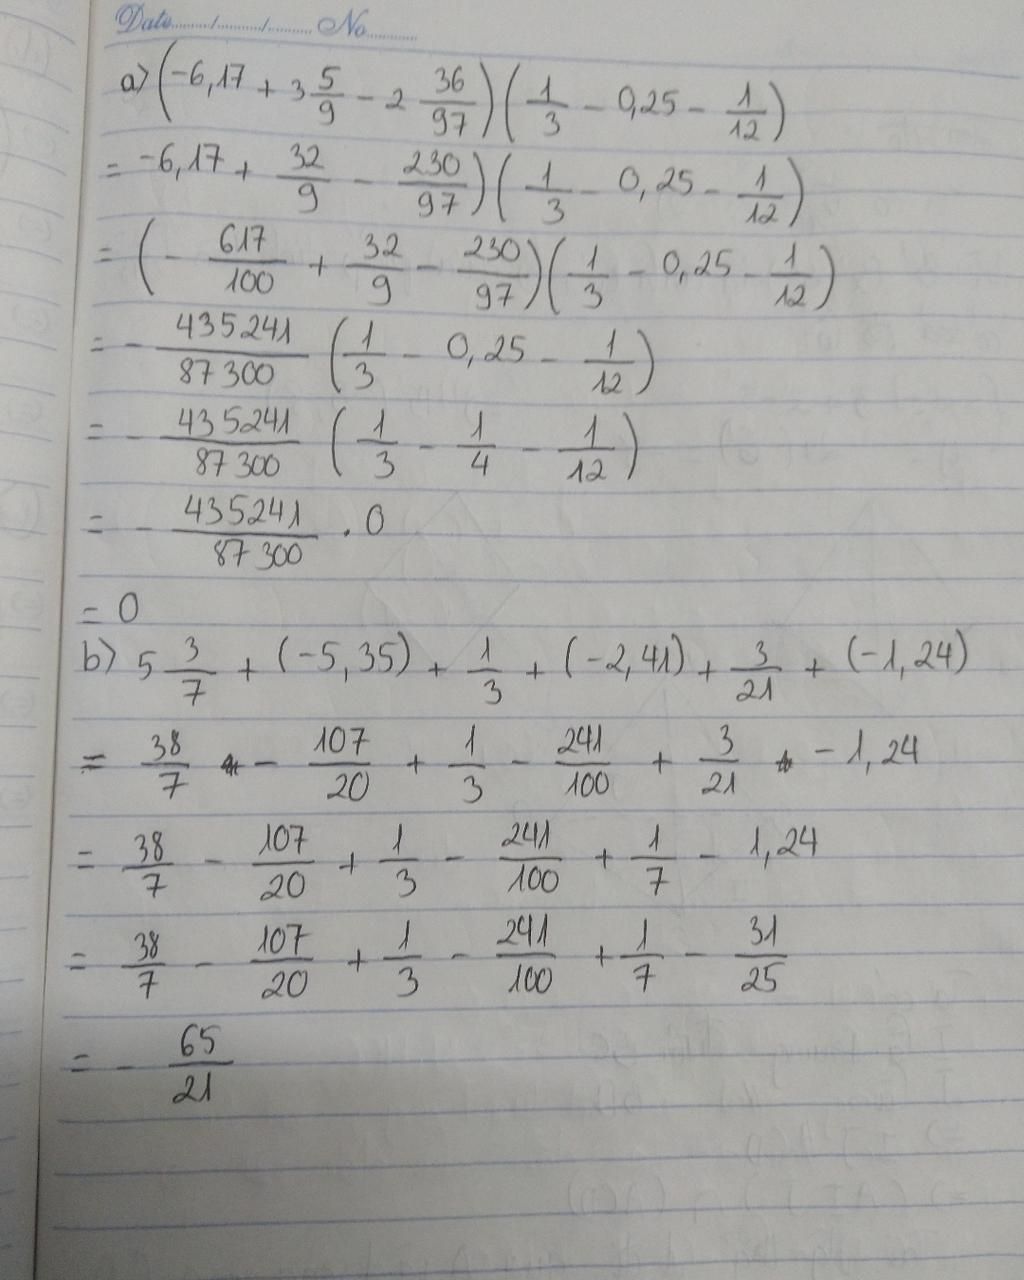 Date......../........./......... No.........
a) (-6,17 + 3 5/9 - 2 36/97)(1/3 - 0,25 - 1/12)
= -6,17 + 32/9 - 230/97)(1/3 - 0,25 - 1/12)
= (- 617/100 + 32/9 - 230/97)(1/3 - 0,25 - 1/12)
= - 435241/87300 (1/3 - 0,25 - 1/12)
= - 435241/87300 (1/3 - 1/4 - 1/12)
= - 435241/87300 . 0
= 0
b) 5 3/7 + (-5,35) + 1/3 + (-2,41) + 3/21 + (-1,24)
= 38/7 - 107/20 + 1/3 - 241/100 + 3/21 - 1,24
= 38/7 - 107/20 + 1/3 - 241/100 + 1/7 - 1,24
= 38/7 - 107/20 + 1/3 - 241/100 + 1/7 - 31/25
= - 65/21